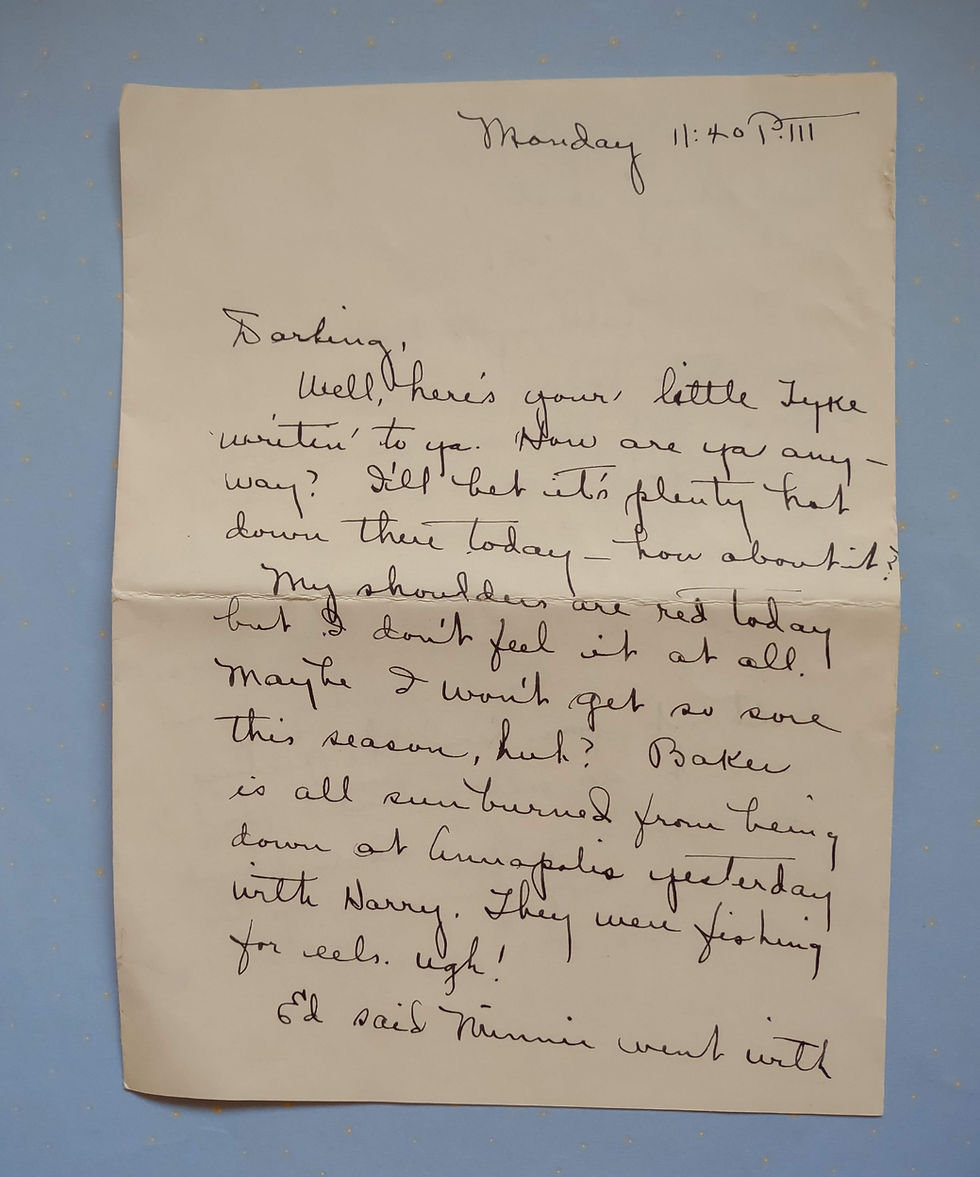 Monday 11:40 P.M
Darling,
Well, here's your little Tyke
writin' to ya. How are ya any-
way? I'll bet it's plenty hot
down there today — how about it?
My shoulders are red today
but I don't feel it at all.
Maybe I won't get so sore
this season, huh? Baker
is all sunburned from being
down at Annapolis yesterday
with Harry. They were fishing
for eels. Ugh!
Ed said Minnie went with